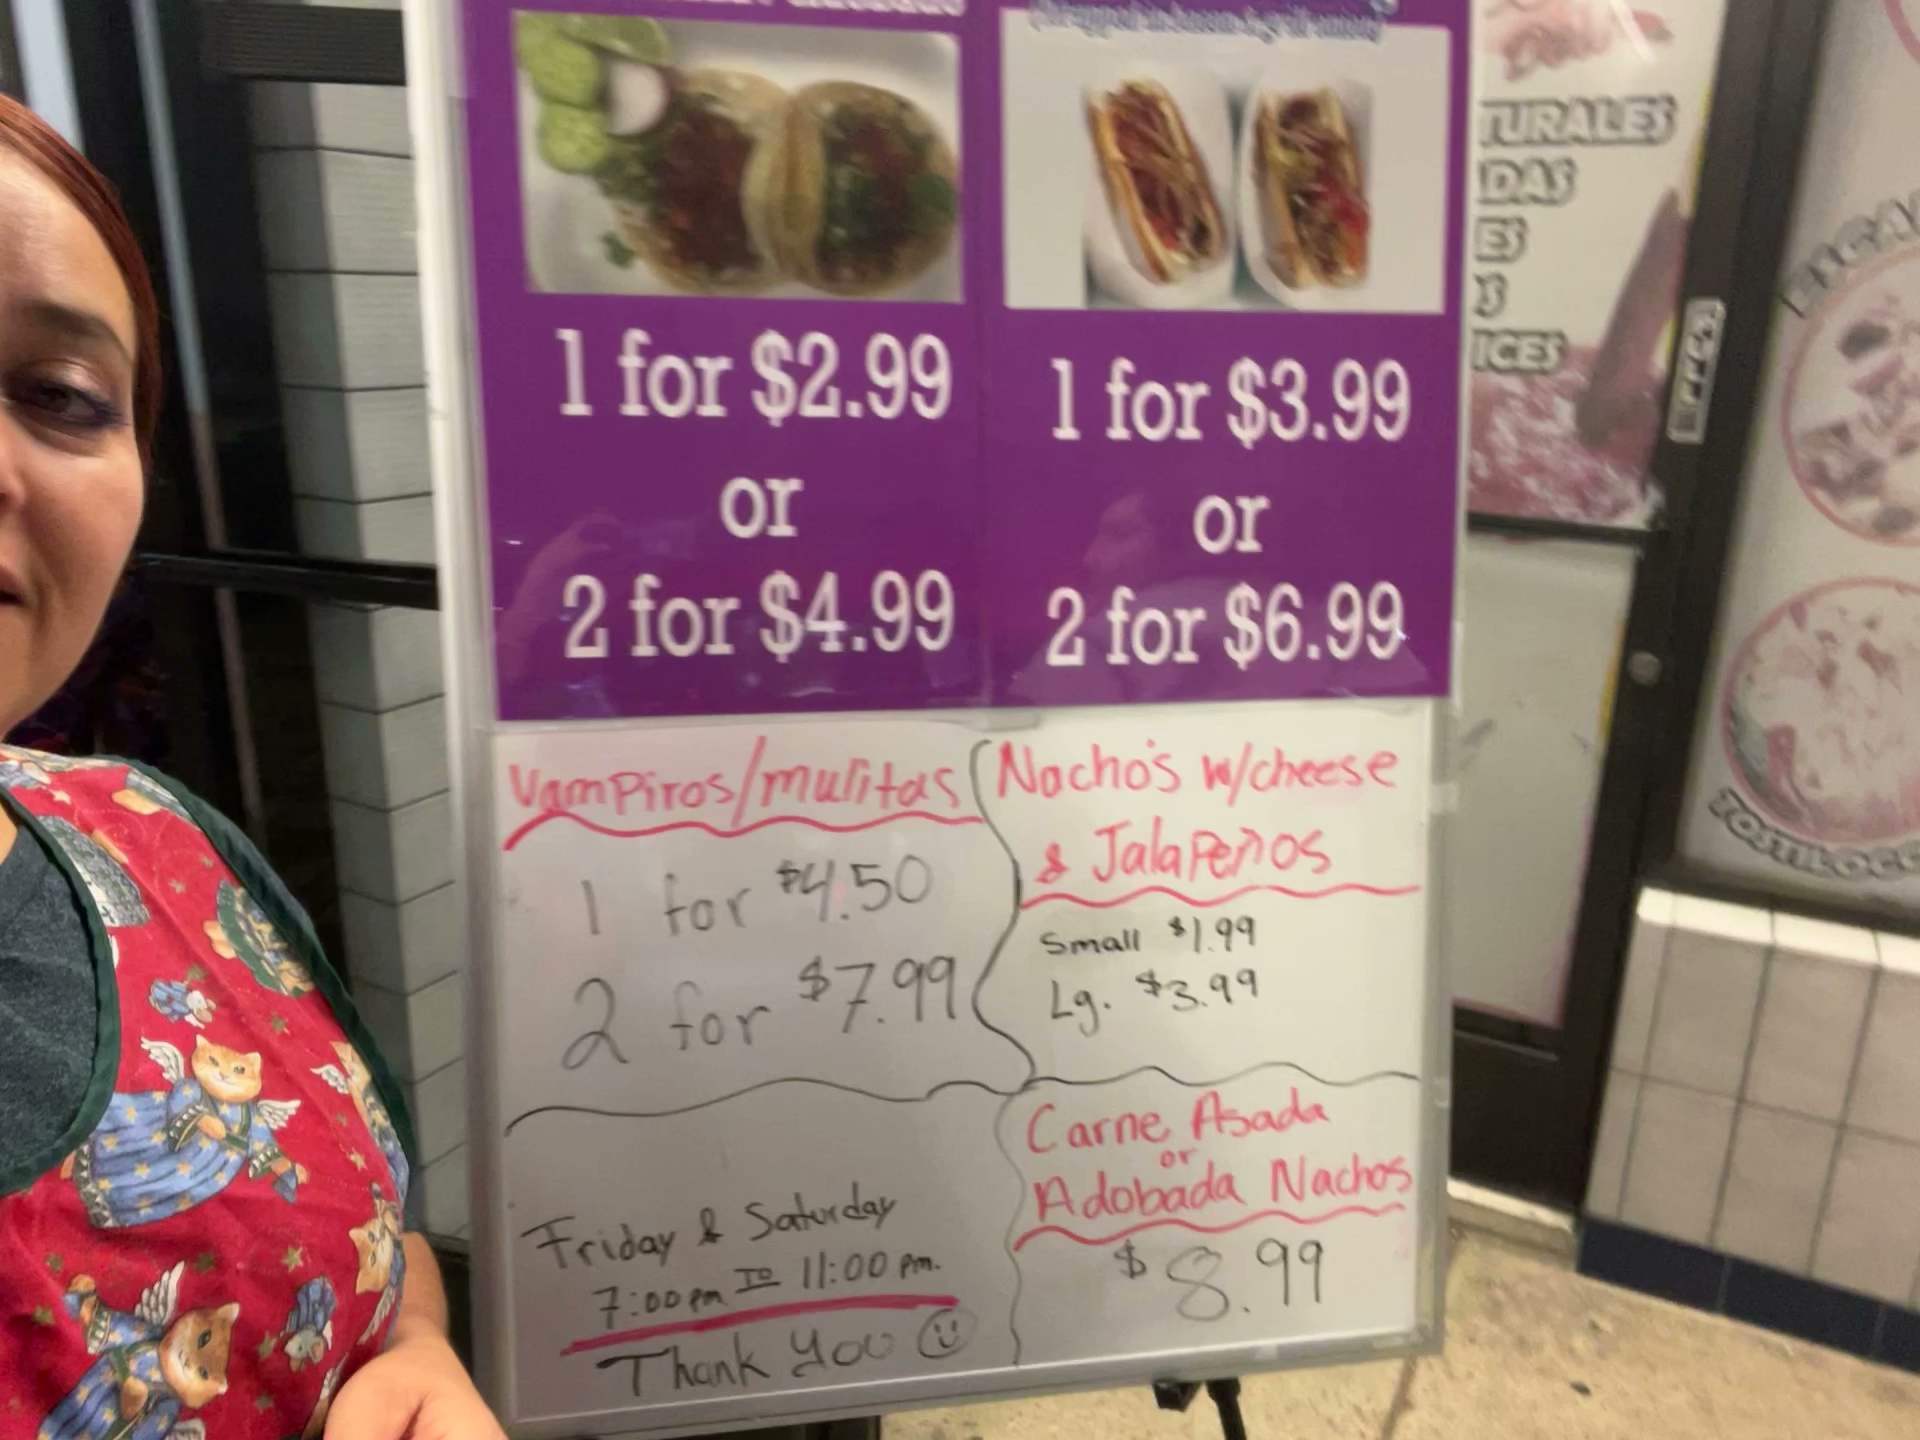 (Wrapped in bacon & grill onion)
1 for $2.99
or
2 for $4.99
1 for $3.99
or
2 for $6.99
Vampiros/mulitas
1 for $4.50
2 for $7.99
Nacho's w/cheese
& Jalapeños
Small $1.99
Lg. $3.99
Friday & Saturday
7:00 pm TO 11:00 pm.
Thank you
Carne Asada
or
Adobada Nachos
$8.99
TURALES
DAS
ES
S
ICES